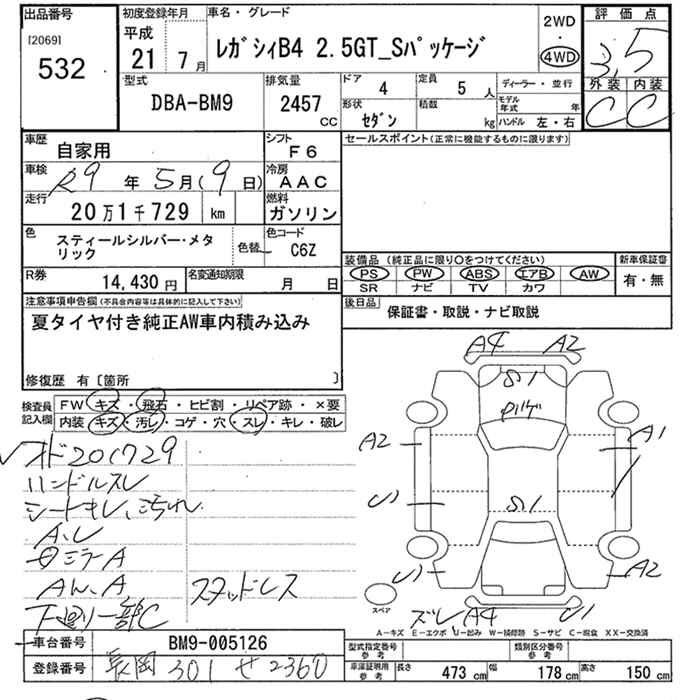 出品番号
[2069]
532
初度登録年月
平成
21 7月
車名・グレード
レガシィB4 2.5GT_Sパッケージ
2WD
・
4WD
評価点
3,5
外装 内装
C C
型式
DBA-BM9
排気量
2457
CC
ドア
4
定員
5 人
ディーラー・並行
形状
セダン
積載
kg
モデル年式 年
ハンドル 左・右
車歴
自家用
シフト
F6
車検
R9 年 5月(9日)
冷房
AAC
走行
20万1千729 km
燃料
ガソリン
色
スティールシルバー・メタ
リック
色替
色コード
C6Z
R券
14,430 円
名変通知期限
月 日
セールスポイント(正常に機能するものに限ります)
装備品 (純正品に限り○をつけてください)
PS PW ABS エアB AW
SR ナビ TV カワ
新車保証書
有・無
後日品
保証書・取説・ナビ取説
注意事項申告欄(不具合内容等は具体的に記入して下さい)
夏タイヤ付き純正AW車内積み込み
修復歴 有〔箇所 〕
検査員
記入欄
FW キズ・飛石・ヒビ割・リペア跡・×要
内装 キズ・汚レ・コゲ・穴・スレ・キレ・破レ
オド201729
ハンドルスレ
シートキレ、汚れ
A、U
ミラーA
スタッドレス
下廻り一部C
A4 A2
S1
A2
A1
U1
S1
A2
スペア
ズレA4
A—キズ E—エクボ U—凹み W—補修跡 S—サビ C—腐食 XX—交換済
車台番号
BM9-005126
登録番号
長岡 301 せ2360
型式指定番号
参考
類別区分番号
参考
車庫証明用
参考
長さ
473 cm
幅
178 cm
高さ
150 cm